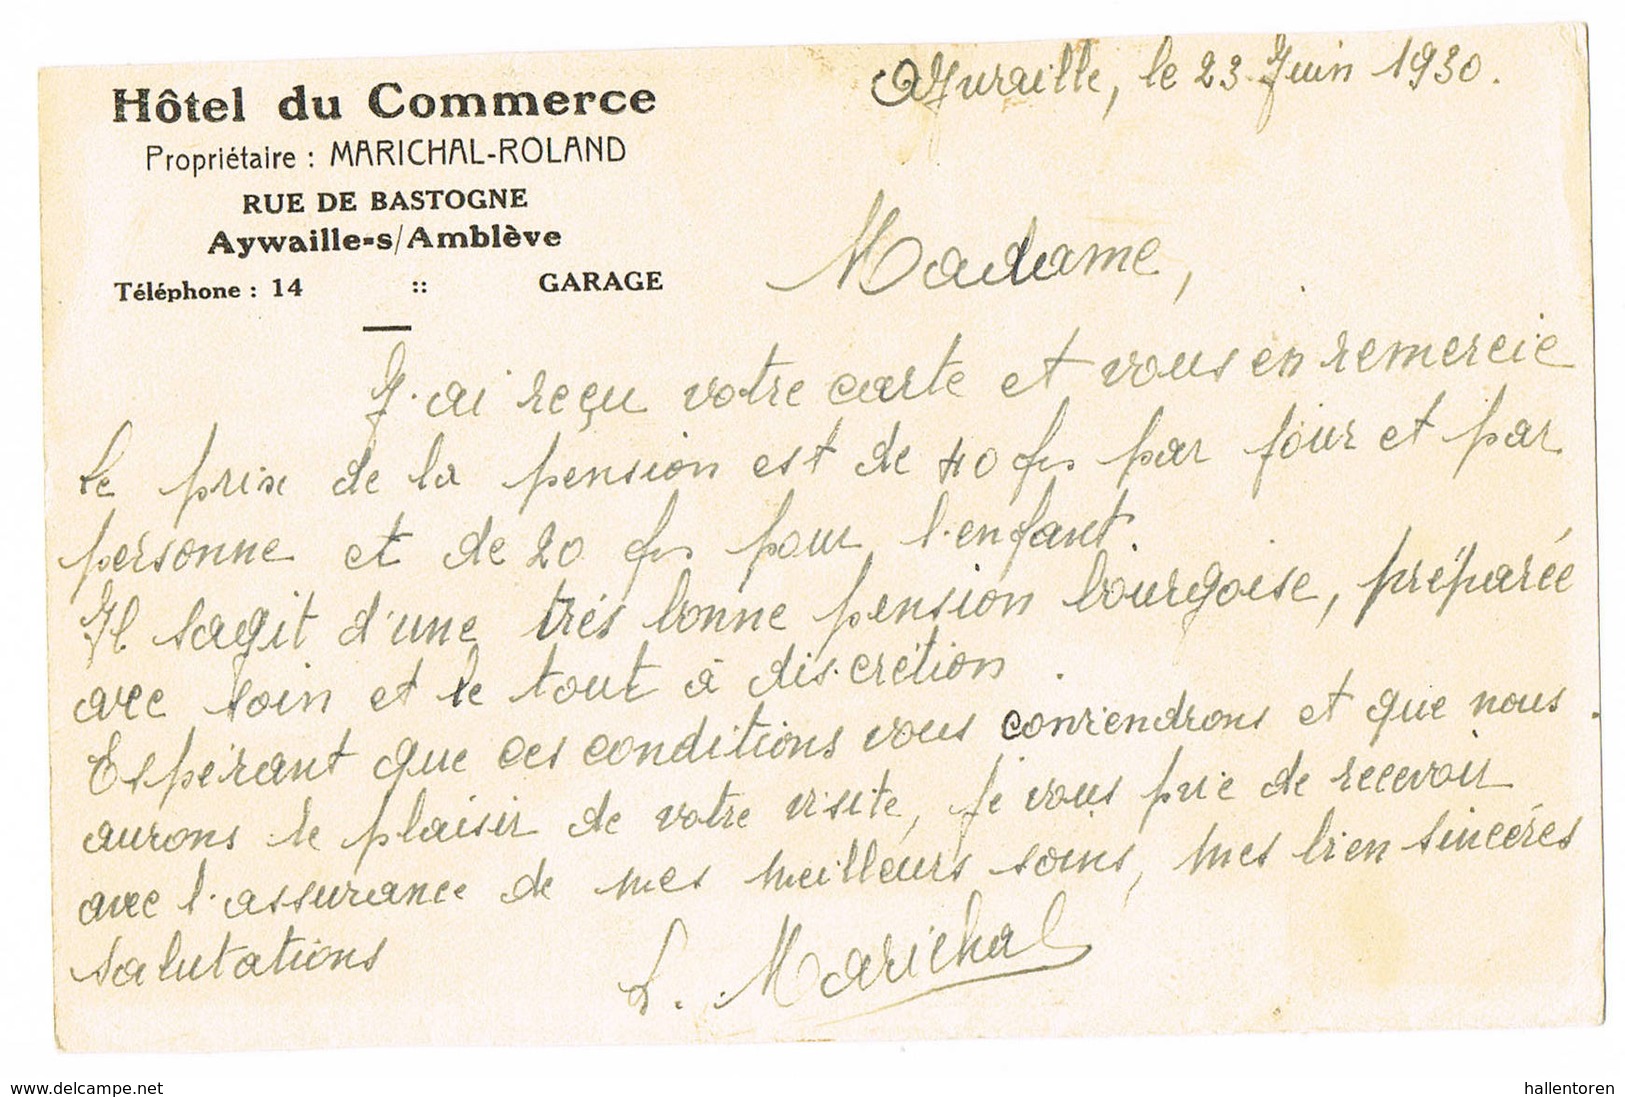 Hôtel du Commerce
Propriétaire : MARICHAL-ROLAND
RUE DE BASTOGNE
Aywaille-s/Amblève
Téléphone : 14 :: GARAGE
le 23 Juin 1930.
Madame,
J'ai reçu votre carte et vous en remercie
le prix de la pension est de 40 frs par jour et par
personne et de 20 frs pour l'enfant.
Il sagit d'une très bonne pension bourgoise, préparée
avec soin et le tout à discrétion.
Espérant que ces conditions vous conviendrons et que nous
aurons le plaisir de votre visite, je vous prie de recevoir
avec l'assurance de mes meilleurs soins, mes bien sincères
salutations
L. Marichal
www.delcampe.net
hallentoren